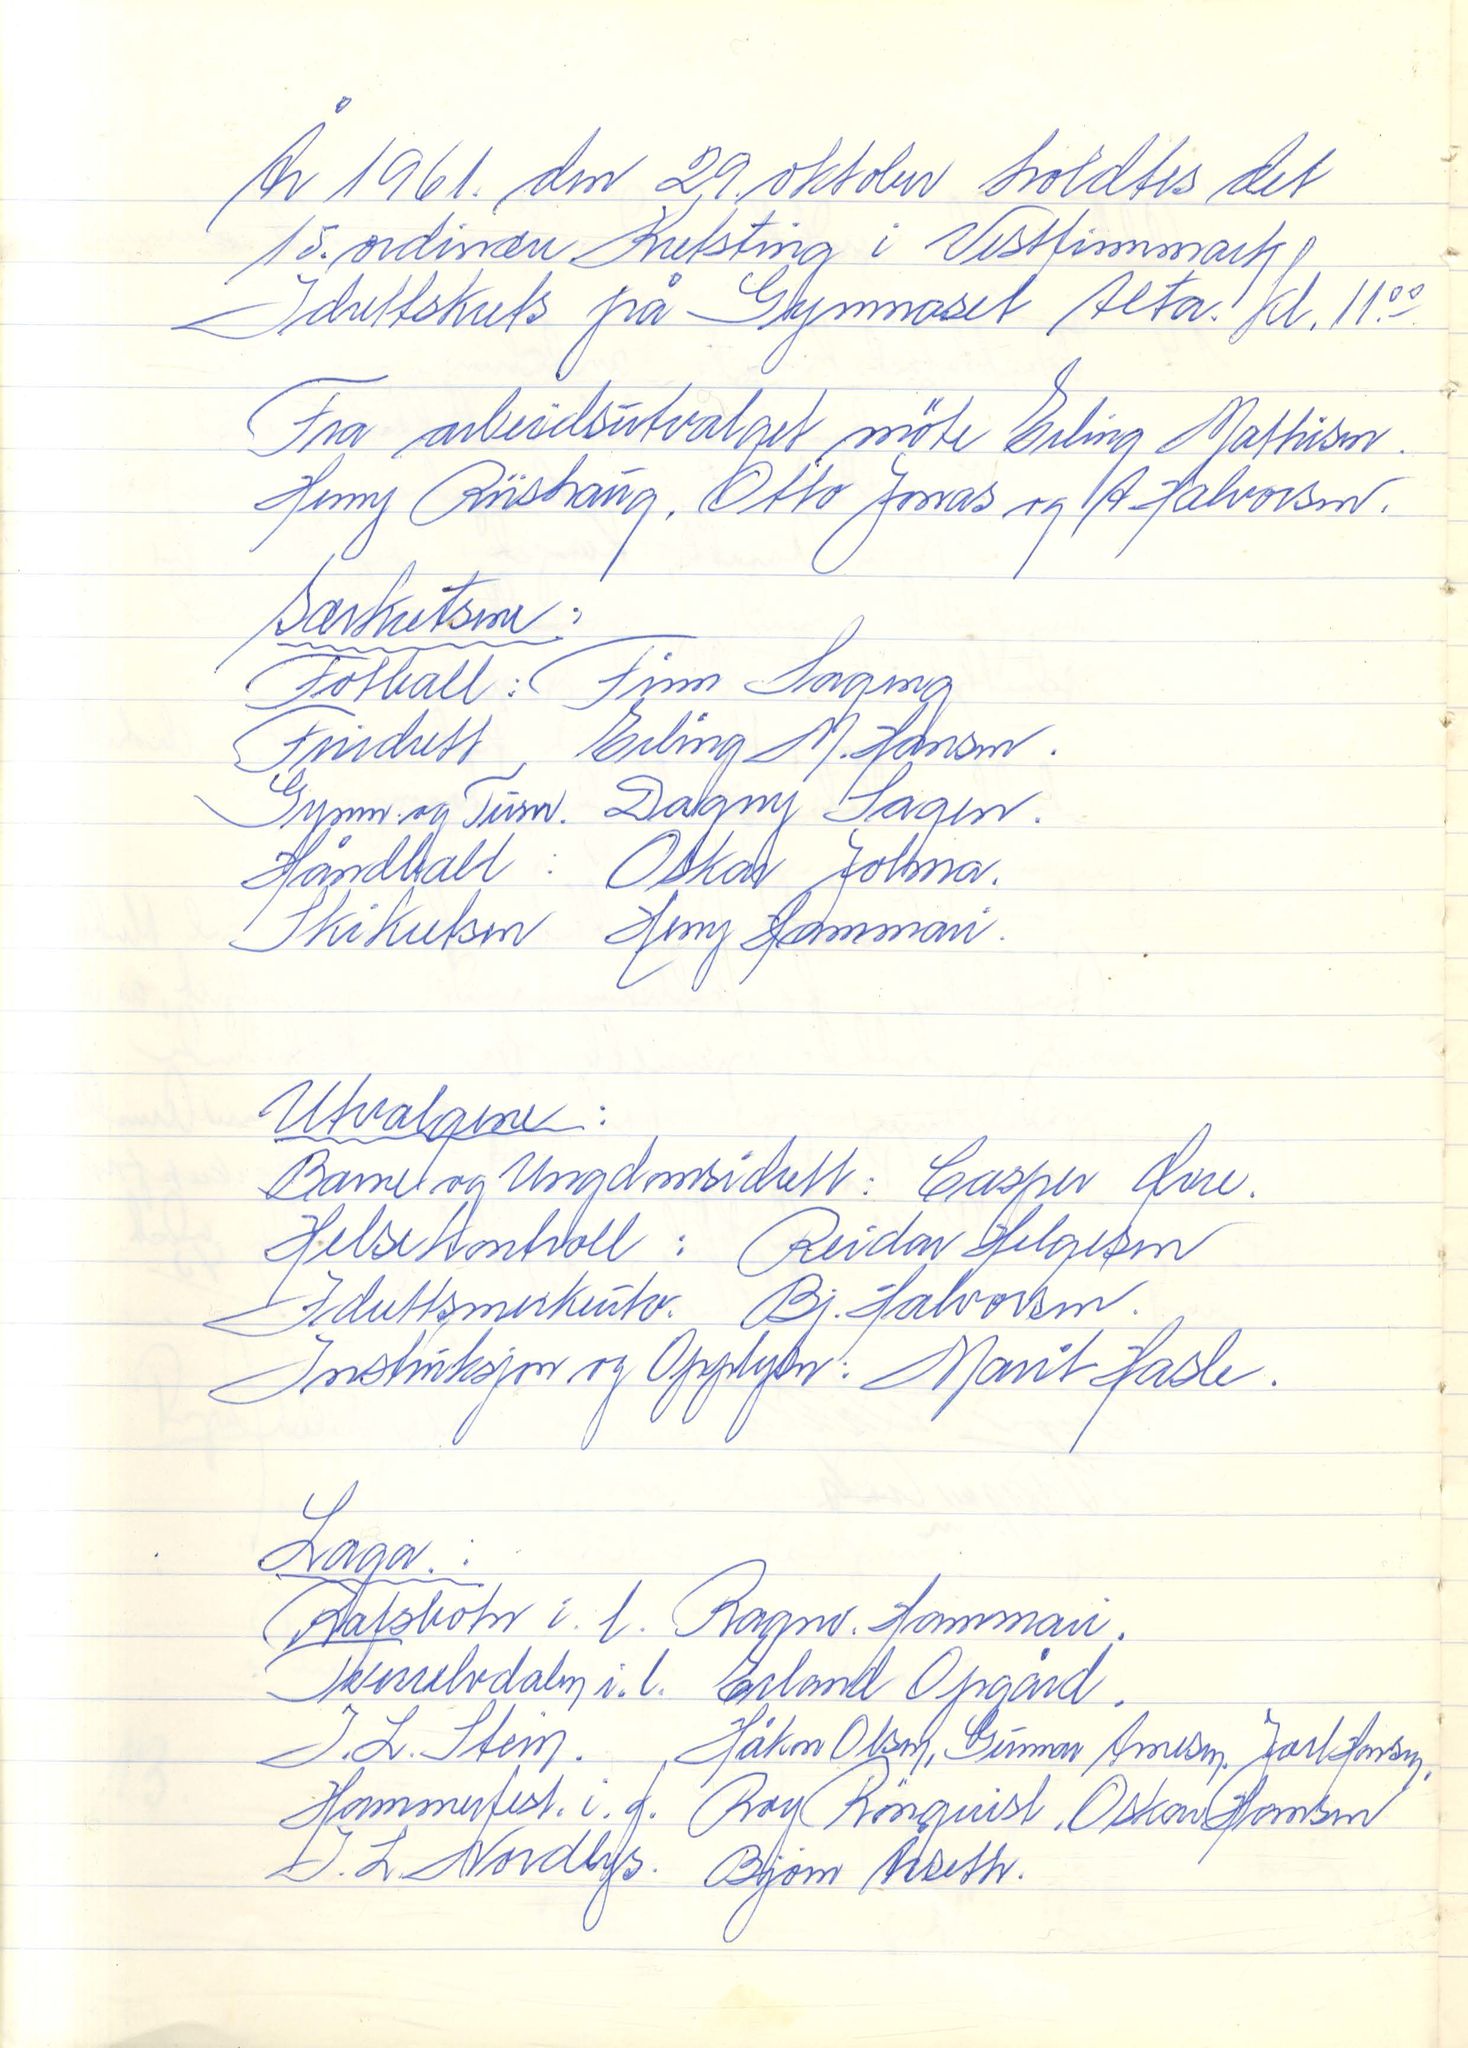 År 1961. den 29. oktober holdtes det
15. ordinære Kretsting i Vestfinnmark
Idrettskrets på Gymnaset Alta. kl. 11.00
Fra arbeidsutvalget møte Erling Mathisen.
Henry Riishaug, Otto Jonas og A Halvorsen.
Særkretsene:
Fotball: Finn Sagen
Friidrett, Erling M. Hansen.
Gymn. og Turn. Dagny Sagen.
Håndball: Oskar Jolma.
Skikretsen Henry Hammari.
Utvalgene:
Barne og Ungdomsidrett: Casper
Helsekontroll: Reidar Helgesen
Idrettsmerkeutv. Bj. Halvorsen.
Instruksjon og Opplysn: Marit Hasle.
Laga.:
Rafsbotn i. l. Ragnv. Hammari.
Tverrelvdalen i. l. Erland Opgård.
I. L. Stein. Håkon Olsen, Gunnar Arnesen, Jarl Hansen,
Hammerfest. i. f. Roy Rönquist, Oskar Hansen
I. L. Nordlys. Bjørn Aaseth.